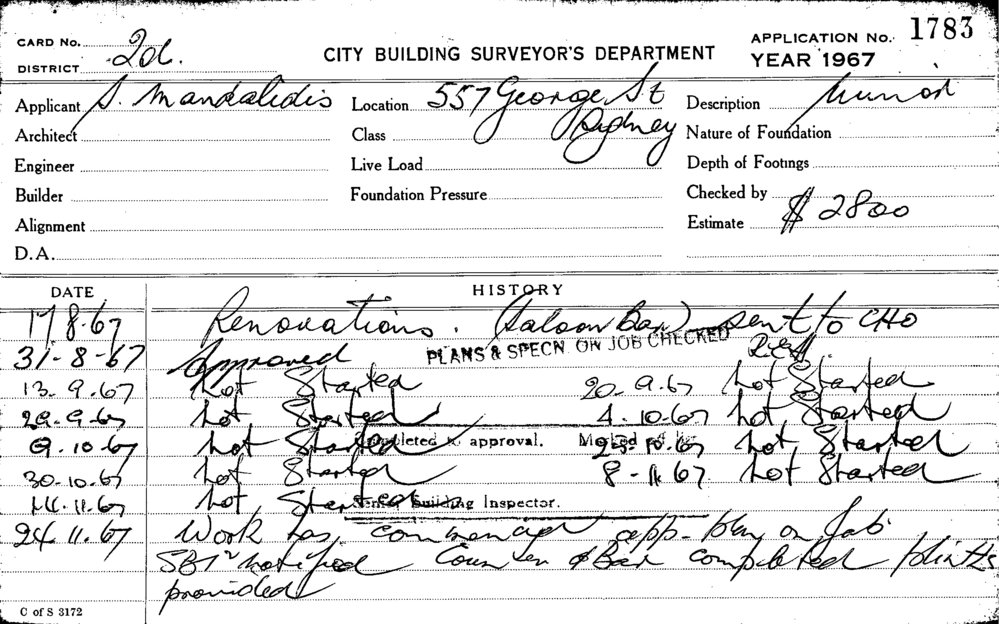 CARD No. 2d.
DISTRICT
CITY BUILDING SURVEYOR'S DEPARTMENT
APPLICATION No. 1783
YEAR 1967
Applicant S. Mandalidis Location 557 George St Description Minor
Architect Class Sydney Nature of Foundation
Engineer Live Load Depth of Footings
Builder Foundation Pressure Checked by
Alignment Estimate $2800
D.A.
DATE HISTORY
17.8.67 Renovations. (Saloon Bar) sent to CHO
31-8-67 Approved PLANS & SPECN. ON JOB CHECKED
13.9.67 Not Started 20.9.67 Not Started
29.9.67 Not Started 4.10.67 Not Started
9.10.67 Not Started 25.10.67 Not Started
Completed to approval.
30.10.67 Not Started 8-11.67 Not Started
14.11.67 Not Started
Senior Building Inspector.
24.11.67 Work has commenced app. plan on Job
SBI notified Counter & Bar completed plinths
provided
C of S 3172